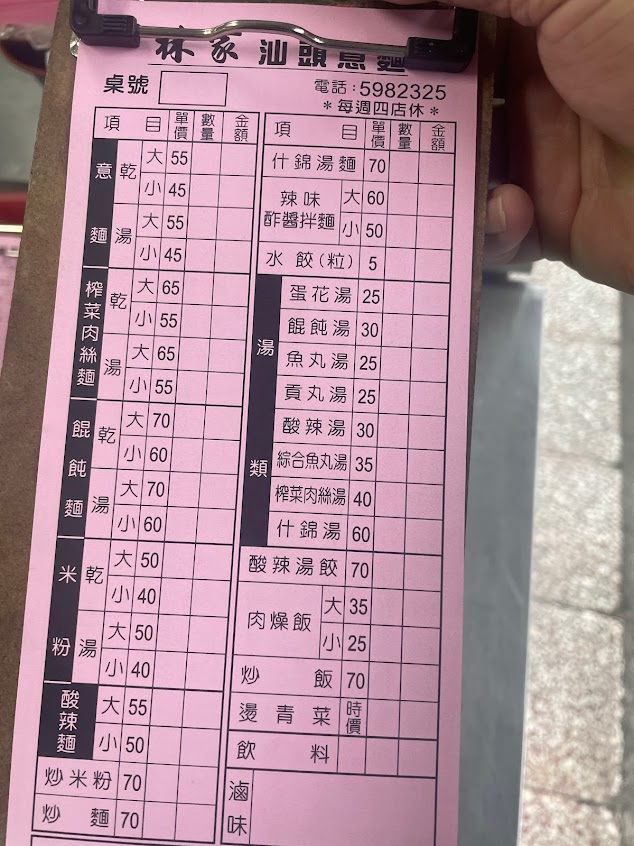 林家 汕頭意麵
桌號
電話：5982325
＊每週四店休＊
項目 單價 數量 金額
意麵 乾 大 55
小 45
湯 大 55
小 45
榨菜肉絲麵 乾 大 65
小 55
湯 大 65
小 55
餛飩麵 乾 大 70
小 60
湯 大 70
小 60
米粉 乾 大 50
小 40
湯 大 50
小 40
酸辣麵 大 55
小 50
炒米粉 70
炒麵 70
項目 單價 數量 金額
什錦湯麵 70
辣味酢醬拌麵 大 60
小 50
水餃(粒) 5
湯類
蛋花湯 25
餛飩湯 30
魚丸湯 25
貢丸湯 25
酸辣湯 30
綜合魚丸湯 35
榨菜肉絲湯 40
什錦湯 60
酸辣湯餃 70
肉燥飯 大 35
小 25
炒飯 70
燙青菜 時價
飲料
滷味